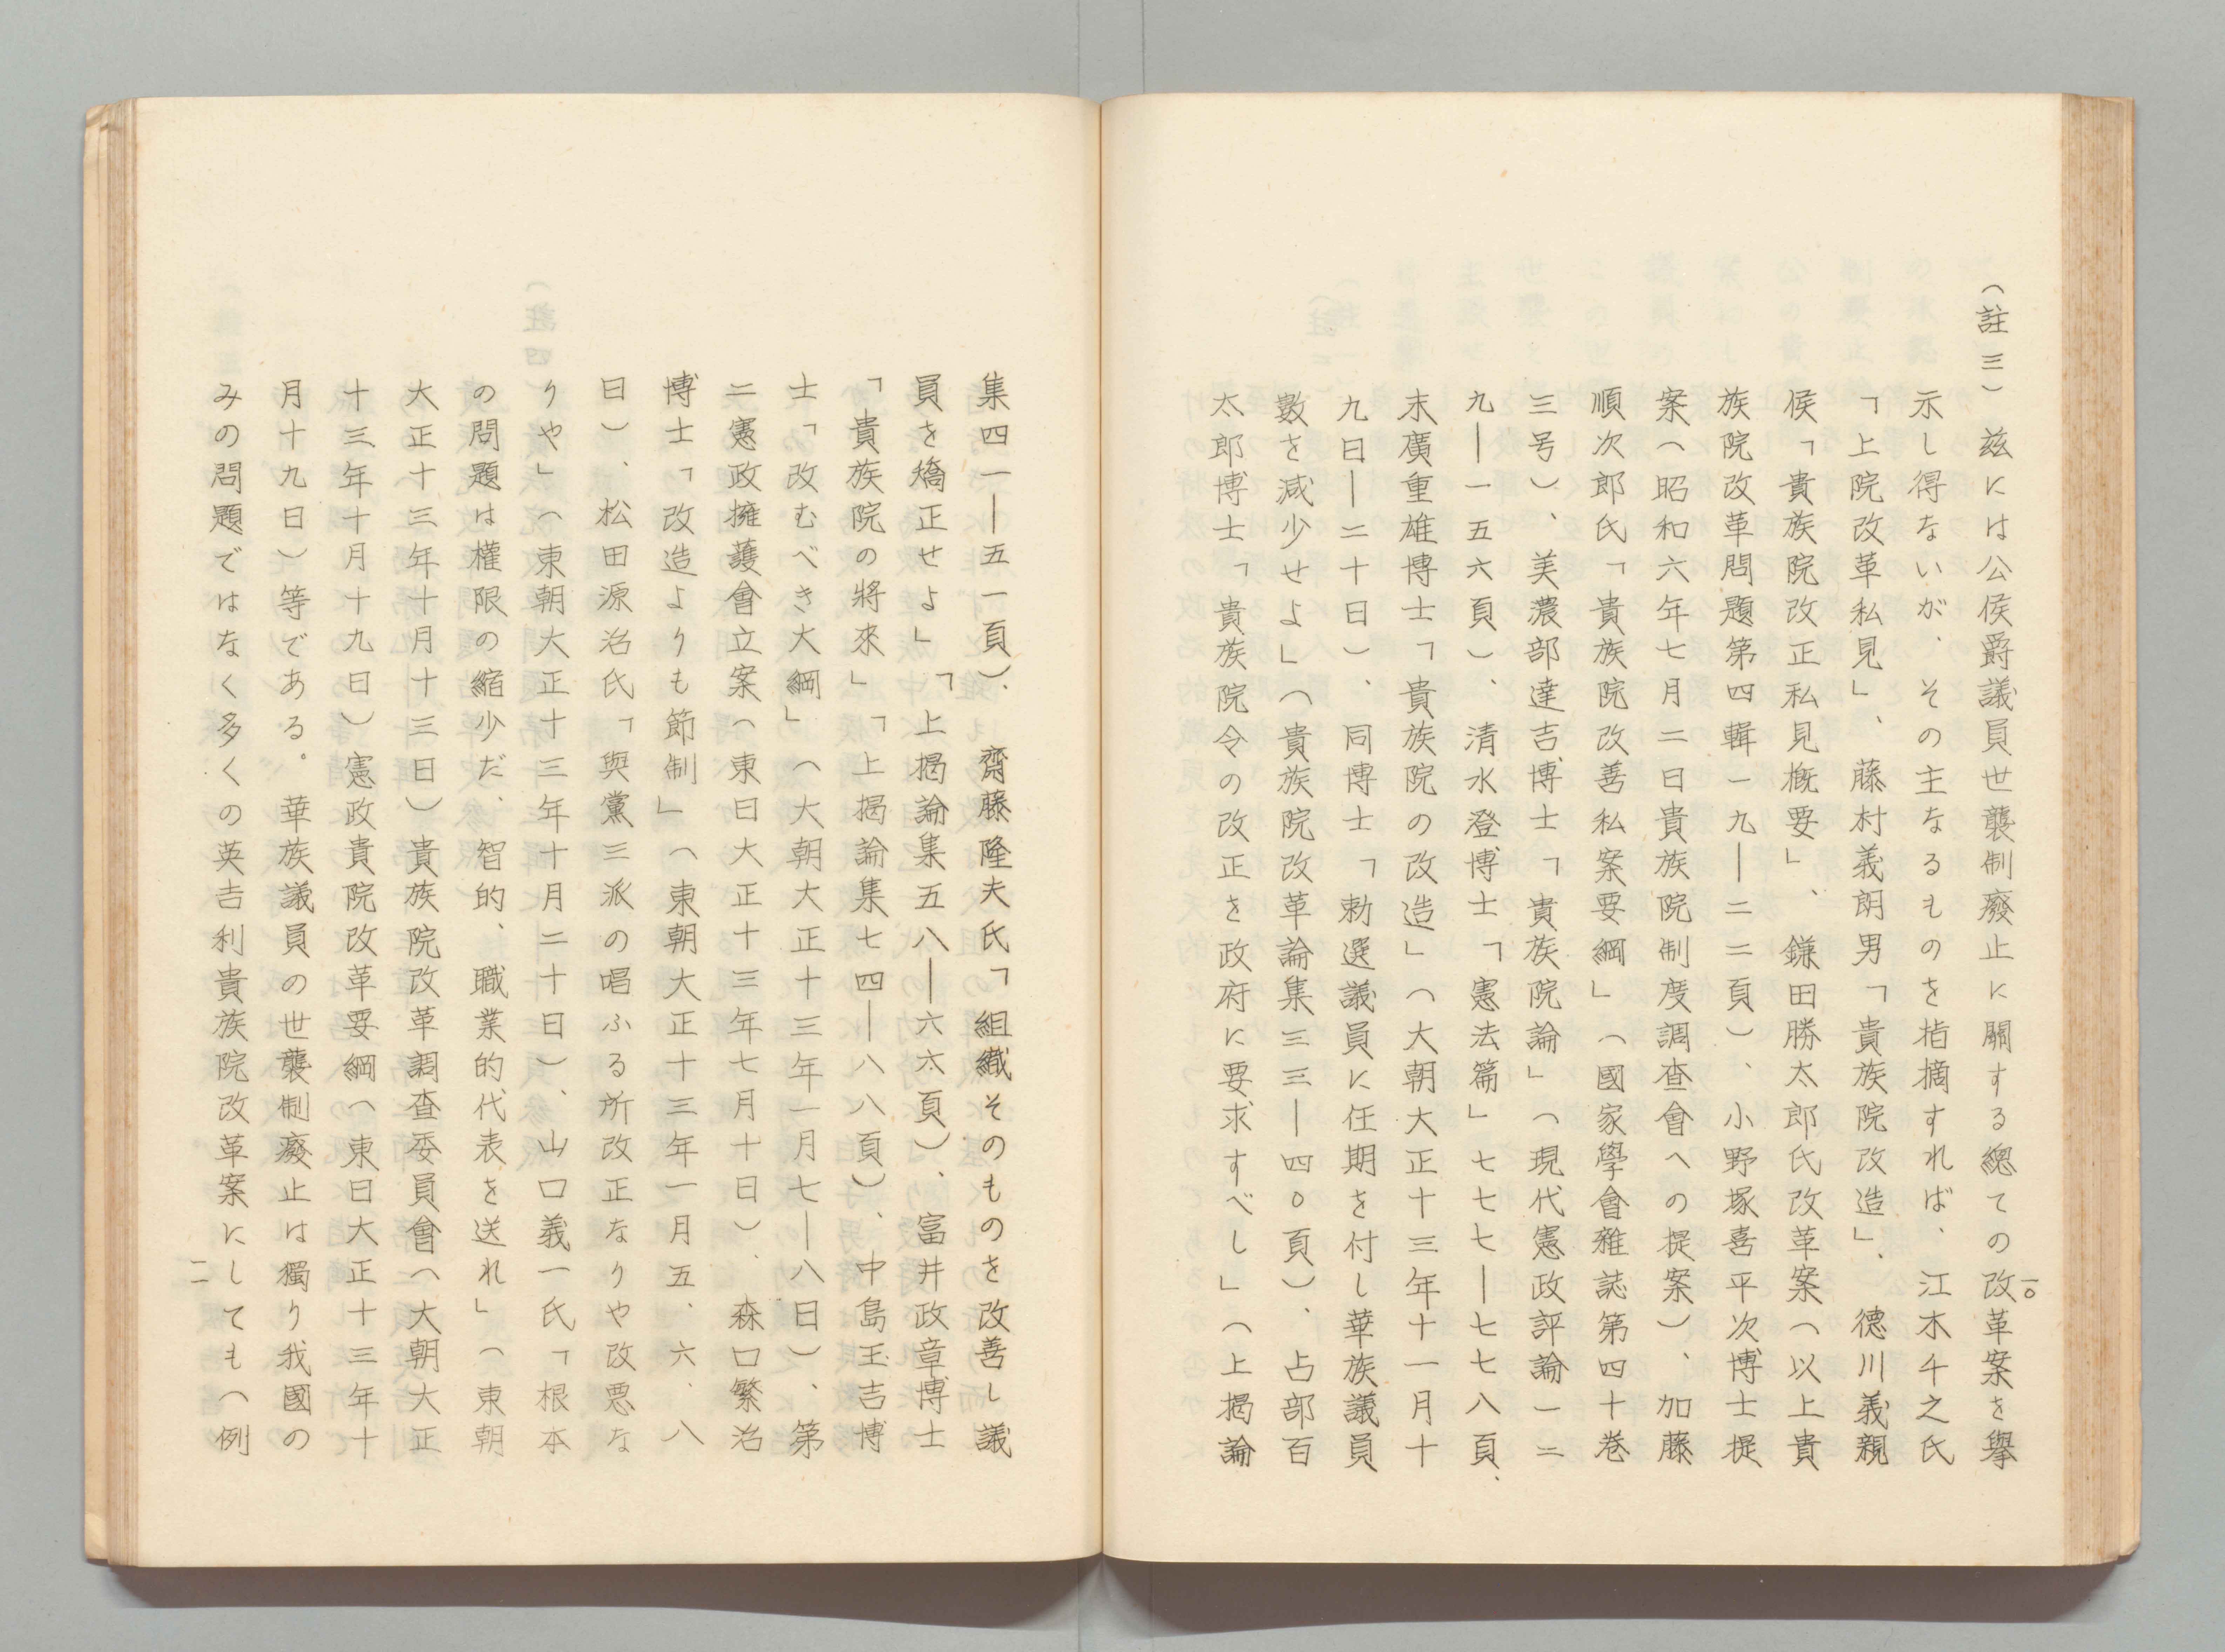 一〇
(註三)玆には公侯爵議員世襲制廢止に關する總ての改革案を擧
示し得ないが、その主なるものを指摘すれば、江木千之氏
「上院改革私見」、藤村義朗男「貴族院改造」、德川義親
侯「貴族院改正私見概要」、鎌田勝太郎氏改革案(以上貴
族院改革問題第四輯一九―二二頁)、小野塚喜平次博士提
案(昭和六年七月二日貴族院制度調查會への提案)、加藤
順次郎氏「貴族院改善私案要綱」(國家學會雜誌第四十巻
三号)、美濃部達吉博士「貴族院論」(現代憲政評論一二
九―一五六頁)、清水澄博士「憲法篇」七七七―七七八頁、
末廣重雄博士「貴族院の改造」(大朝大正十三年十一月十
九日―二十日)、同博士「勅選議員に任期を付し華族議員
數を減少せよ」(貴族院改革論集三三―四〇頁)、占部百
太郎博士「貴族院令の改正を政府に要求すべし」(上揭論
集四一―五一頁)、齋藤隆夫氏「組織そのものを改善し議
員を矯正せよ」「上揭論集五八―六六頁)、富井政章博士
「貴族院の將來」「上揭論集七四―八八頁)、中島玉吉博
士「改むべき大綱」(大朝大正十三年一月七―八日)、第
二憲政擁護會立案(東日大正十三年七月十日)、森口繁治
博士「改造よりも節制」(東朝大正十三年一月五、六、八
日)、松田源治氏「與黨三派の唱ふる所改正なりや改悪な
りや」(東朝大正十三年十月二十日)、山口義一氏「根本
の問題は權限の縮少だ、智的、職業的代表を送れ」(東朝
大正十三年十月十三日)貴族院改革調查委員會(大朝大正
十三年十月十九日)憲政貴院改革要綱(東日大正十三年十
月十九日)等である。華族議員の世襲制廢止は獨り我國の
みの問題ではなく多くの英吉利貴族院改革案にしても(例
一一